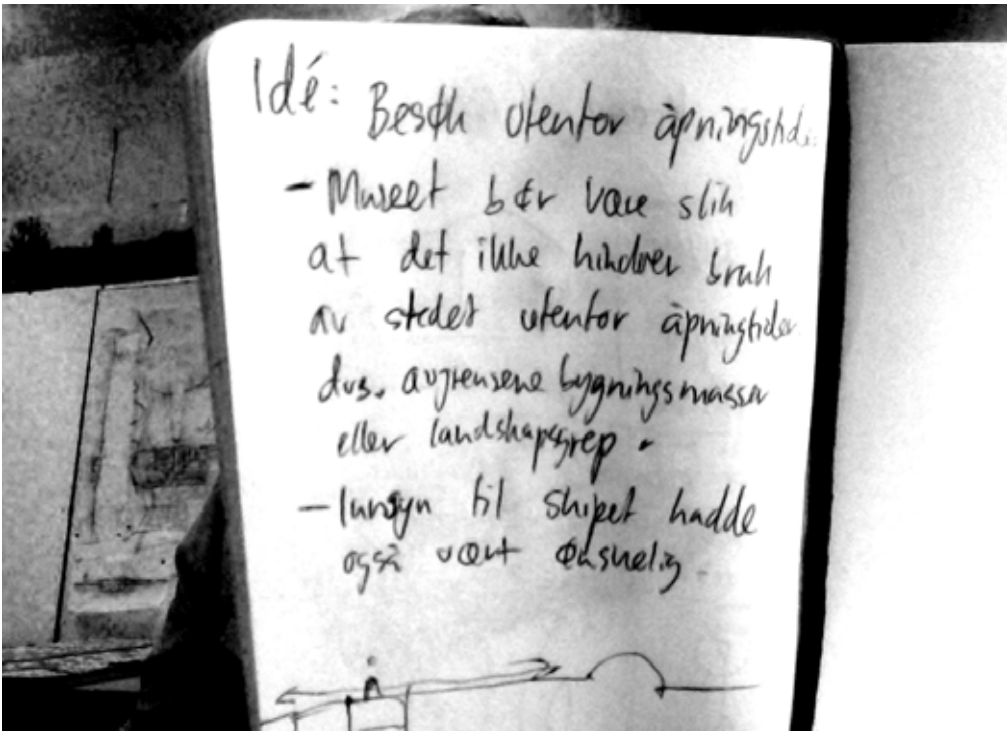 Idé: Besøk utenfor åpningstid
- Museet bør være slik
at det ikke hindrer bruk
av stedet utenfor åpningtider
dvs. avgrensene bygningsmasser
eller landskapsgrep.
- Innsyn til skipet hadde
også vært ønskelig.